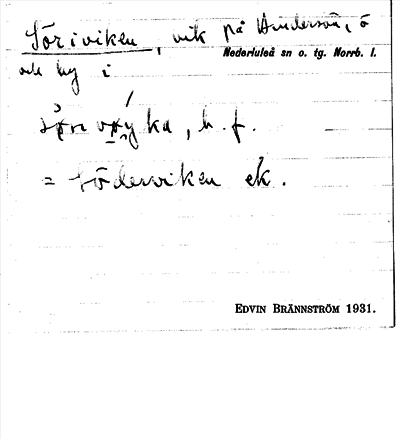 Söriviken, vik på Hindersön, ö
Nederluleå sn o. tg. Norrb. l.
och by i
, b. f.
= Söderviken ek.
EDVIN BRÄNNSTRÖM 1931.